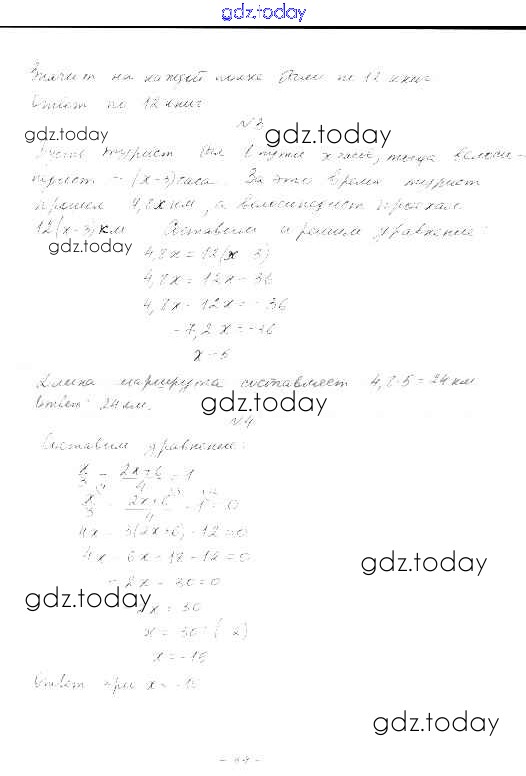 gdz.today
Значит на каждой полке было по 12 книг
Ответ по 12 книг
gdz.today
№3
gdz.today
Пусть турист был в пути x часов, тогда велоси-
педист - (x-3) часа. За это время турист
прошел 4,8x км, а велосипедист проехал
12(x-3) км Составим и решим уравнение:
gdz.today
4,8x = 12(x-3)
4,8x = 12x - 36
4,8x - 12x = - 36
-7,2x = -36
x = 5
Длина маршрута составляет 4,8·5 = 24 км
Ответ: 24 км.
gdz.today
№4
Составим уравнение:
x/3 - (2x+6)/4 = 1
x/3 - (2x+6)/4 - 1 = 0
4x - 3(2x+6) - 12 = 0
4x - 6x - 18 - 12 = 0
gdz.today
- 2x - 30 = 0
gdz.today
2x = 30
x = 30:(-2)
x = -15
Ответ при x = -15
gdz.today